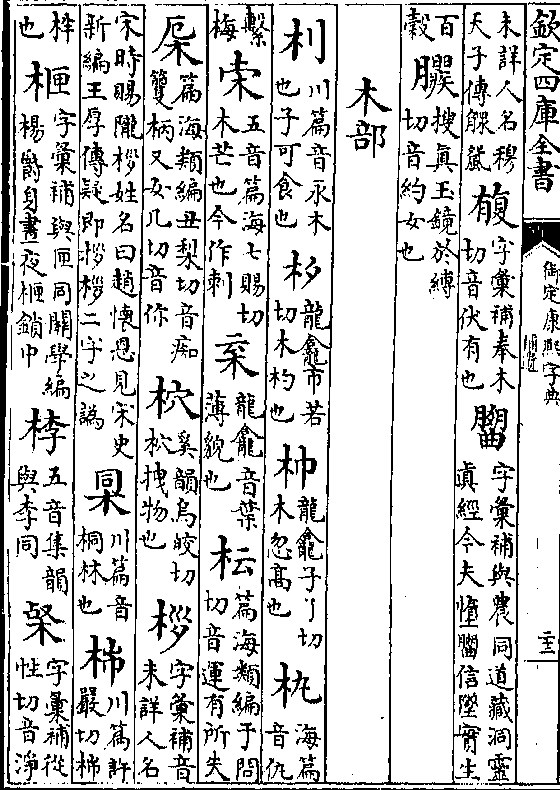 欽定四庫全書
御定康熙字典
備考
二十三
未詳人名穆天子傳
字彙補奉木切音伏有也
字彙補與農同道藏洞靈真經今夫惟信陞實生百穀
䑏搜真玉鏡於縛切音約女也
木部
杊川篇音永木也子可食也
杉龍龕市若切木杓也
龍龕子了切木忽高也
朹海篇音仇
繫梅
朿五音篇海七賜切木芒也今作刺
龍龕音葉薄貌也
枟篇海類編于問切音運有所失
杘篇海類編丑梨切音痴籰柄又女几切音你
奚韻烏皎切杴拽物也
桚字彙補音未詳人名
宋時賜隴桚姓名曰趙懷恩見宋史新編王厚傳疑即拶桚二字之譌
川篇音桐林也
柹川篇許嚴切柹
桳也
柙字彙補與匣同關學編楊爵身晝夜柙鎖中
㭒五音集韻與李同
字彙補從性切音淨